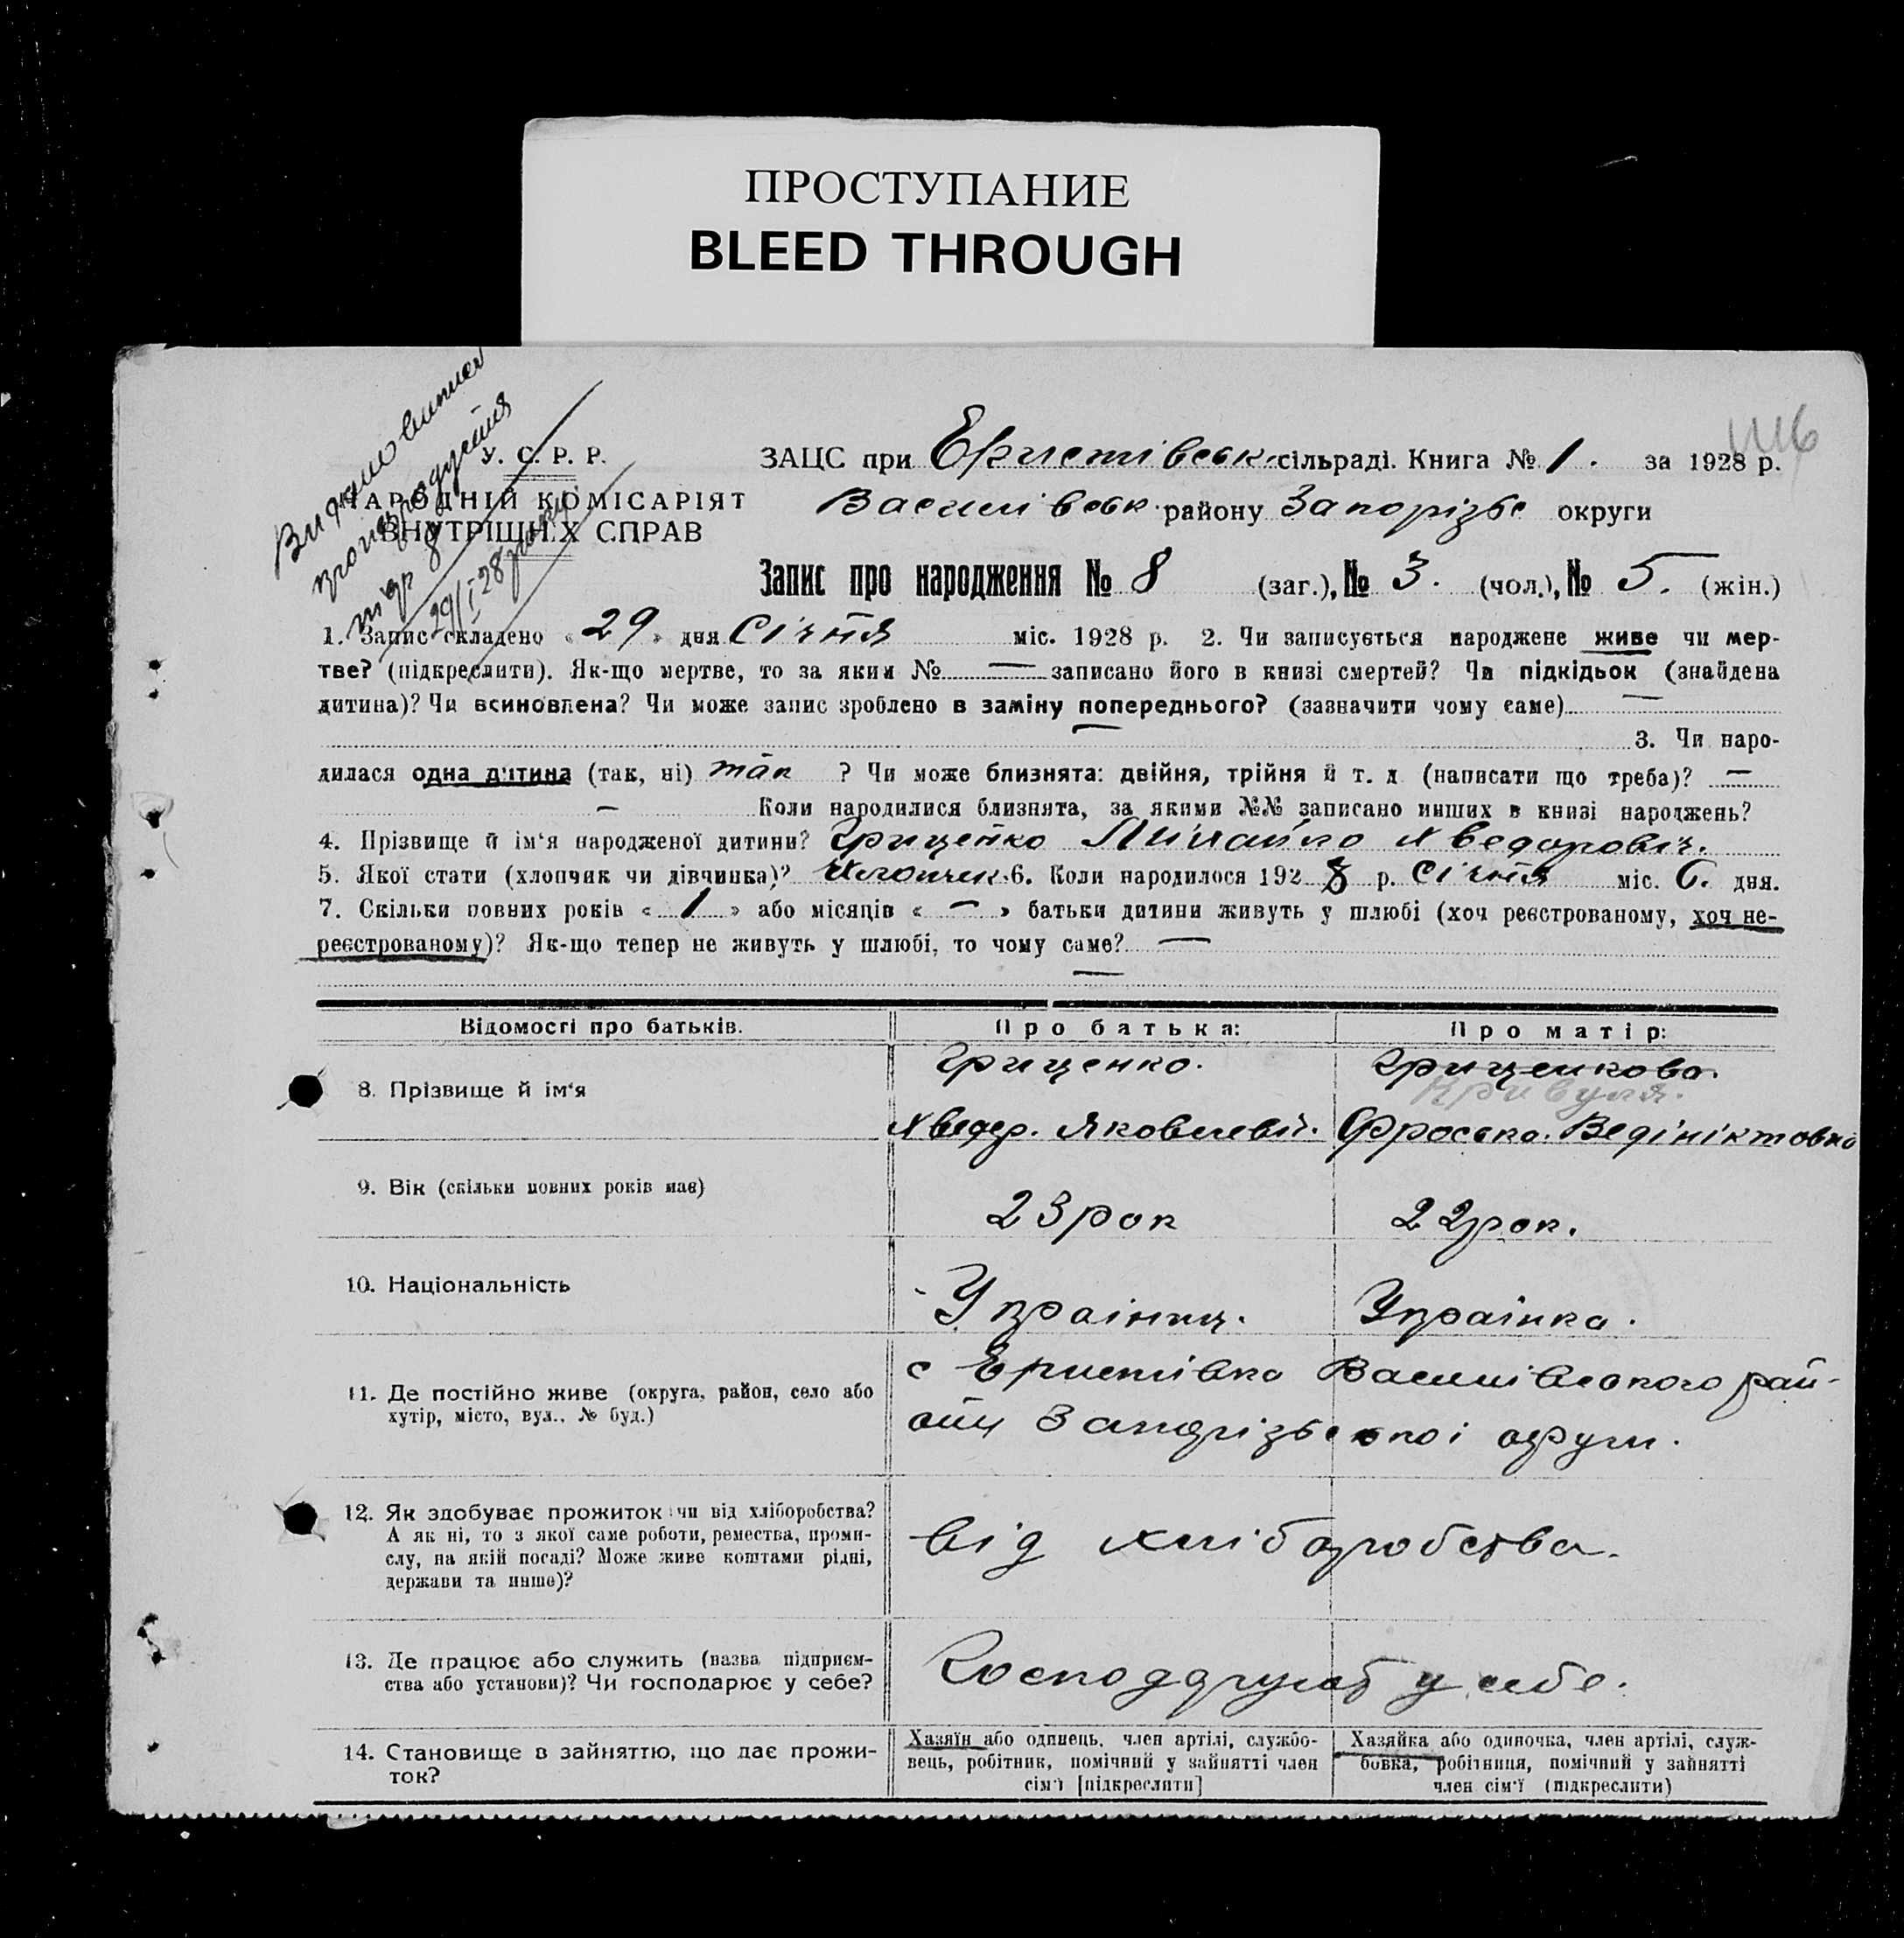 ПРОСТУПАНИЕ
BLEED THROUGH
1116
Видано виписа
про народження
під № 8
29/I 28 року.
У. С. Р. Р.
НАРОДНІЙ КОМІСАРІЯТ
ВНУТРІШНІХ СПРАВ
ЗАЦС при Еристівськ. сільраді. Книга № 1. за 1928 р.
Василівськ. району Запорізьс округи
Запис про народження № 8 (заг.), № 3. (чол.), № 5. (жін.)
1. Запис складено « 29 » дня Січня міс. 1928 р. 2. Чи записується народжене живе чи мер-
тве? (підкреслити). Як-що мертве, то за яким № — записано його в книзі смертей? Чи підкідьок (знайдена
дитина)? Чи всиновлена? Чи може запис зроблено в заміну попереднього? (зазначити чому саме) —
3. Чи наро-
дилася одна дитина (так, ні) так ? Чи може близнята: двійня, трійня й т. д (написати що треба)? —
— Коли народилися близнята, за якими №№ записано инших в книзі народжень?
4. Прізвище й ім‘я народженої дитини? Гриценко Михайло Хведорович.
5. Якої стати (хлопчик чи дівчинка)? Хлопчик. 6. Коли народилося 1928 р. Січня міс. 6. дня.
7. Скільки повних років « 1 » або місяців « — » батьки дитини живуть у шлюбі (хоч реєстрованому, хоч не-
реєстрованому)? Як-що тепер не живуть у шлюбі, то чому саме? —
—
Відомості про батьків. Про батька: Про матір:
8. Прізвище й ім‘я Гриценко. Гриценкова.
Кривуля.
Хведер. Яковлевіч. Фроська. Ведініктовна
9. Вік (скільки повних років має) 23 рок 22 рок.
10. Національність Українец. Українка.
11. Де постійно живе (округа, район, село або
хутір, місто, вул.. № буд.)
с Еристівка Василівського рай-
ону Запорізьської округи.
12. Як здобуває прожиток: чи від хліборобства?
А як ні, то з якої саме роботи, ремества, проми-
слу, на якій посаді? Може живе коштами рідні,
держави та инше)?
від хліборобства.
13. Де працює або служить (назва підприєм-
ства або установи)? Чи господарює у себе?
у себе.
14. Становище в зайняттю, що дає прожи-
ток?
Хазяїн або одинець, член артілі, службо-
вець, робітник, помічний у зайнятті член
сім‘ї [підкреслити]
Хазяйка або одиночка, член артілі, служ-
бовка, робітниця, помічний у зайнятті
член сім‘ї (підкреслити)